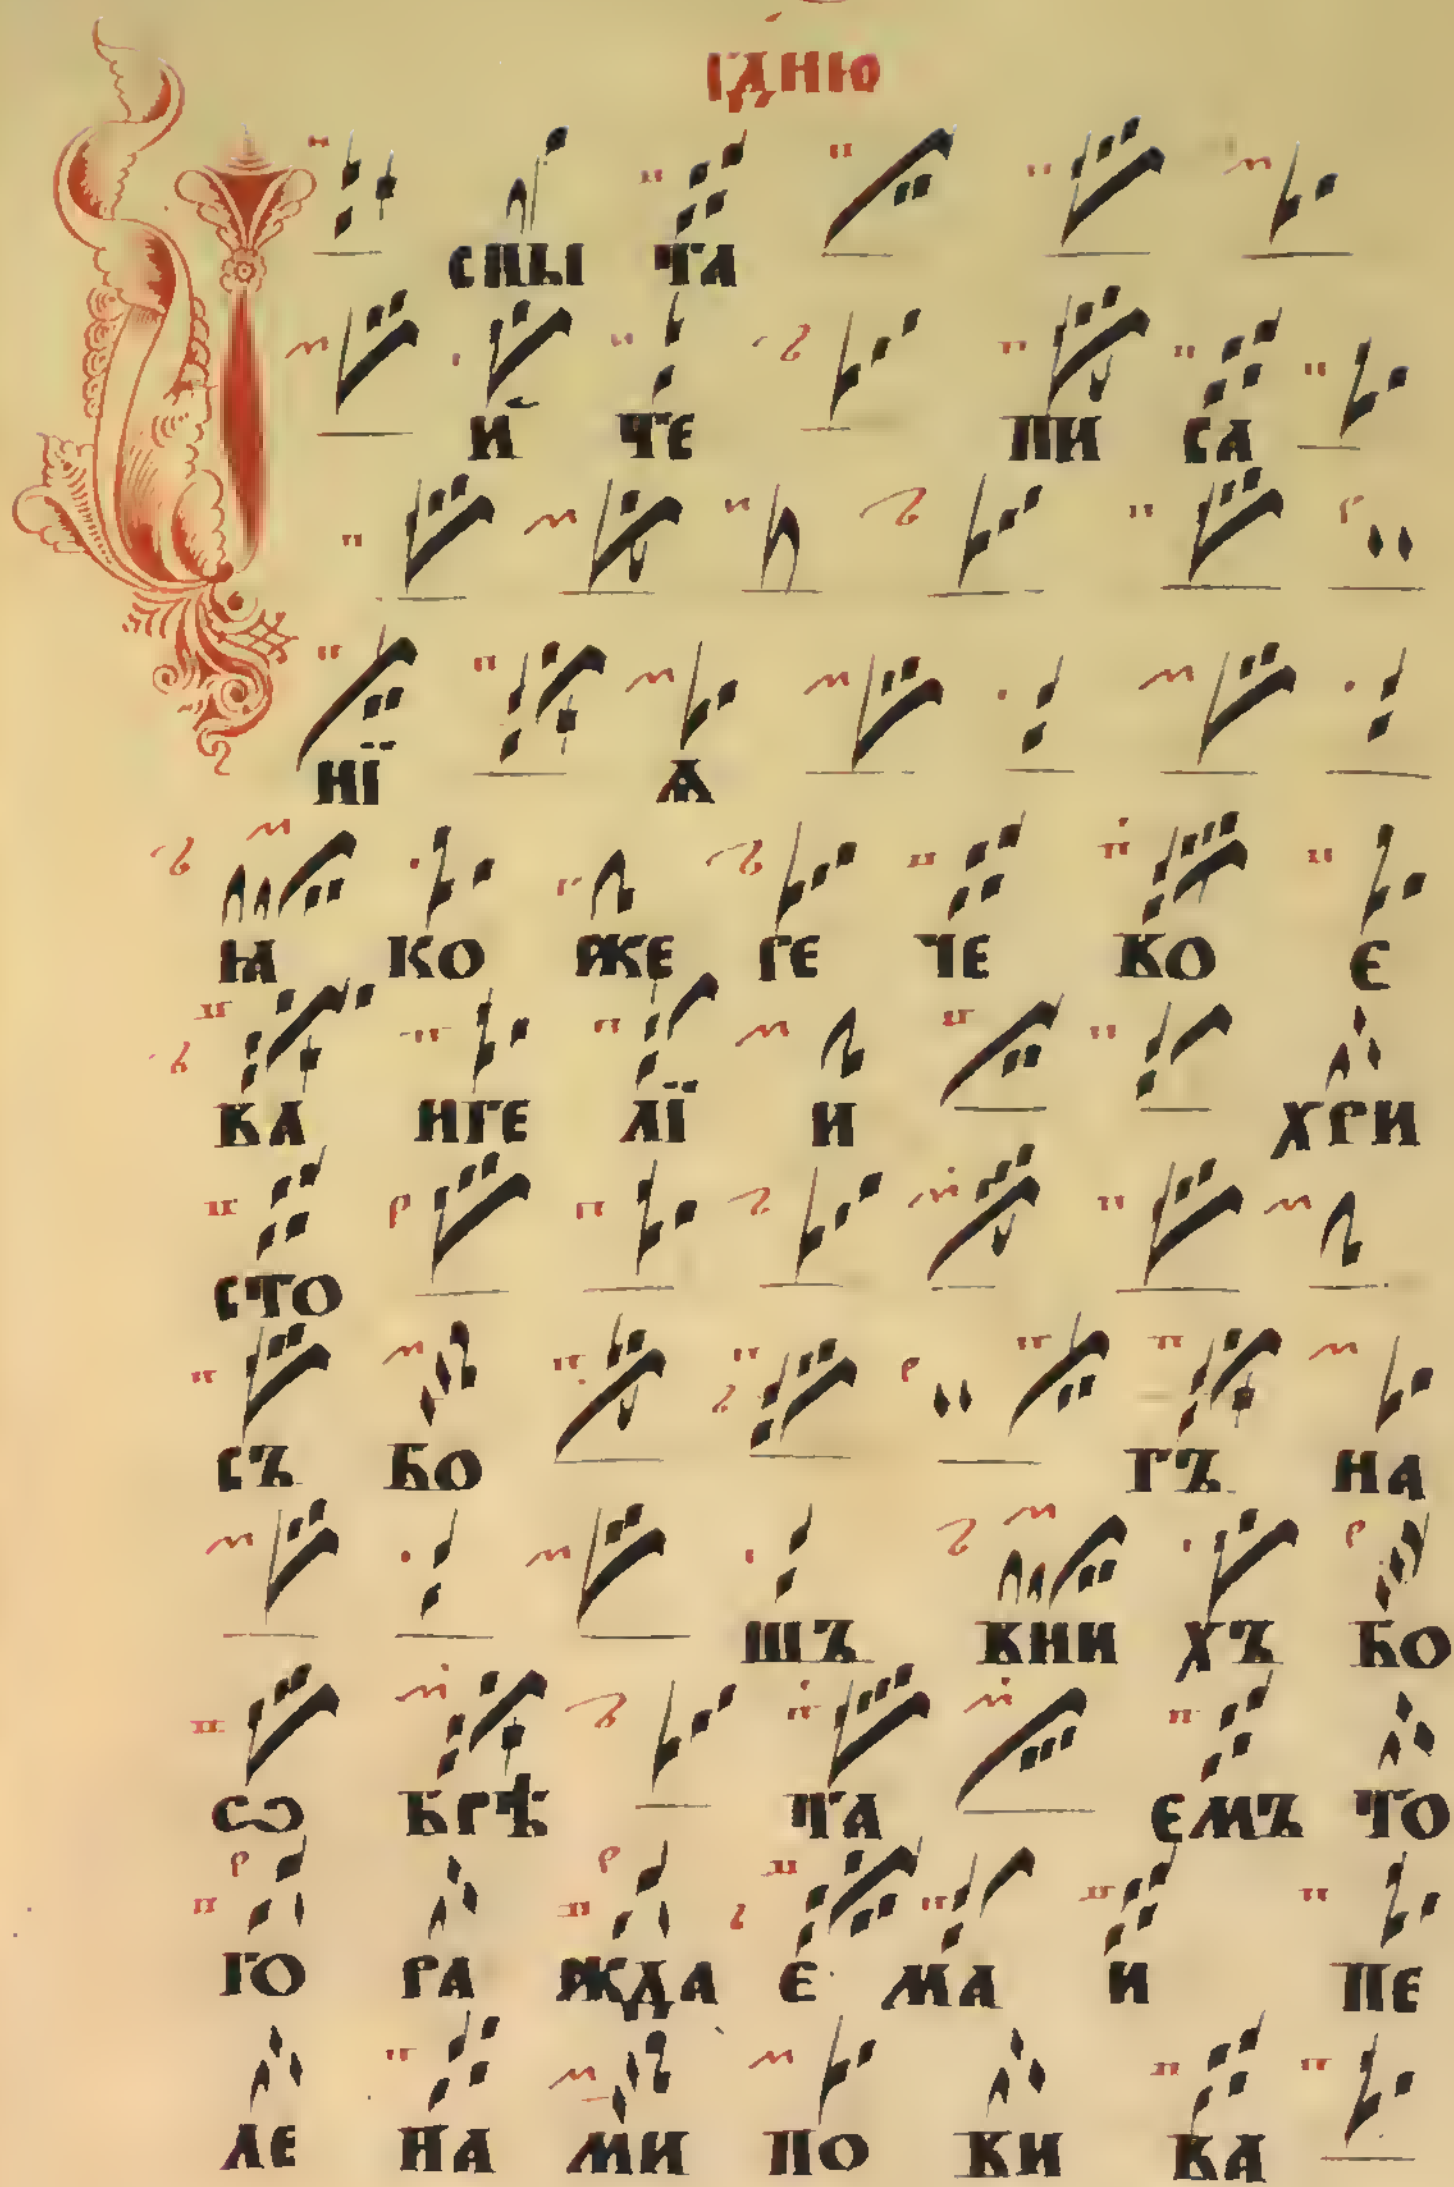 ГДНЮ
СПЫ ТА
И ЧЕ ПИ СА
НЇ Ѧ
Ꙗ КО ЖЕ ГЕ ЧЕ ВО Є
ВА НГЕ ЛЇ И ХРИ
СТО
СЪ БО ГЪ НА
ШЪ ВНИ ХЪ БО
Ѡ БРѢ ТА ЕМЪ ТО
ГО РА ЖДА Е МА И ПЕ
ЛЕ НА МИ ПО ВИ ВА